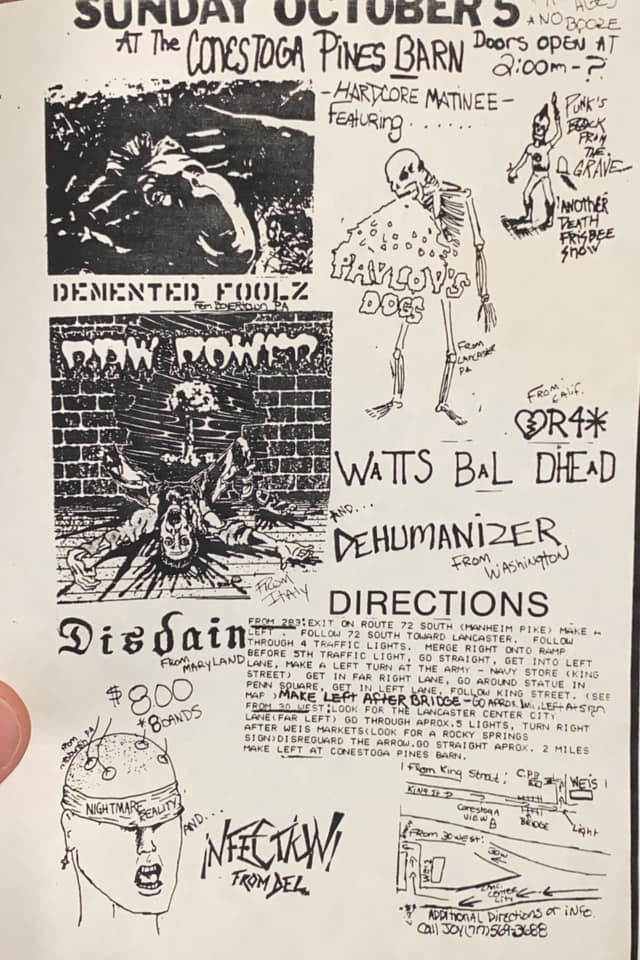 SUNDAY OCTOBER 5
AND BOOZE
AT The CONESTOGA PINES BARN
Doors OPEN AT
2:00m-?
-HARDCORE MATINEE-
FEATURING......
PUNK'S
BACK
FROM
THE
GRAVE
ANOTHER
DEATH
FRISBEE
SHOW
PAVLOV'S
DOGS
FROM
LANCASTER
PA
DEMENTED FOOLZ
From BOYERTOWN, PA
RAW POWER
FROM
ITALY
FROM
Calif.
OR4*
WATTS BAL DHEAD
AND...
DEHUMANIZER
FROM
WASHINGTON
Disdain
FROM MARYLAND
$8.00
*8 BANDS
DIRECTIONS
FROM 283:EXIT ON ROUTE 72 SOUTH (MANHEIM PIKE) MAKE A
LEFT . FOLLOW 72 SOUTH TOWARD LANCASTER. FOLLOW
THROUGH 4 TRAFFIC LIGHTS. MERGE RIGHT ONTO RAMP
BEFORE 5TH TRAFFIC LIGHT, GO STRAIGHT, GET INTO LEFT
LANE, MAKE A LEFT TURN AT THE ARMY - NAVY STORE (KING
STREET) GET IN FAR RIGHT LANE, GO AROUND STATUE IN
PENN SQUARE, GET IN LEFT LANE, FOLLOW KING STREET. (SEE
MAP )MAKE LEFT AFTER BRIDGE-GO APROX. 1mi. LEFT AT SIGN
FROM 30 WEST:LOOK FOR THE LANCASTER CENTER CITY
LANE(FAR LEFT) GO THROUGH APROX.5 LIGHTS, TURN RIGHT
AFTER WEIS MARKETS(LOOK FOR A ROCKY SPRINGS
SIGN)DISREGUARD THE ARROW.GO STRAIGHT APROX. 2 MILES
MAKE LEFT AT CONESTOGA PINES BARN.
NIGHTMARE REALITY
AND...
INFECTION!
FROM DEL.
From King Street:
WEIS
KING ST
Conestoga
VIEW
BRIDGE
Light
From 30 West:
CENTER
CITY
ADDITIONAL Directions or iNFO.
Call JOY(717)569-3688